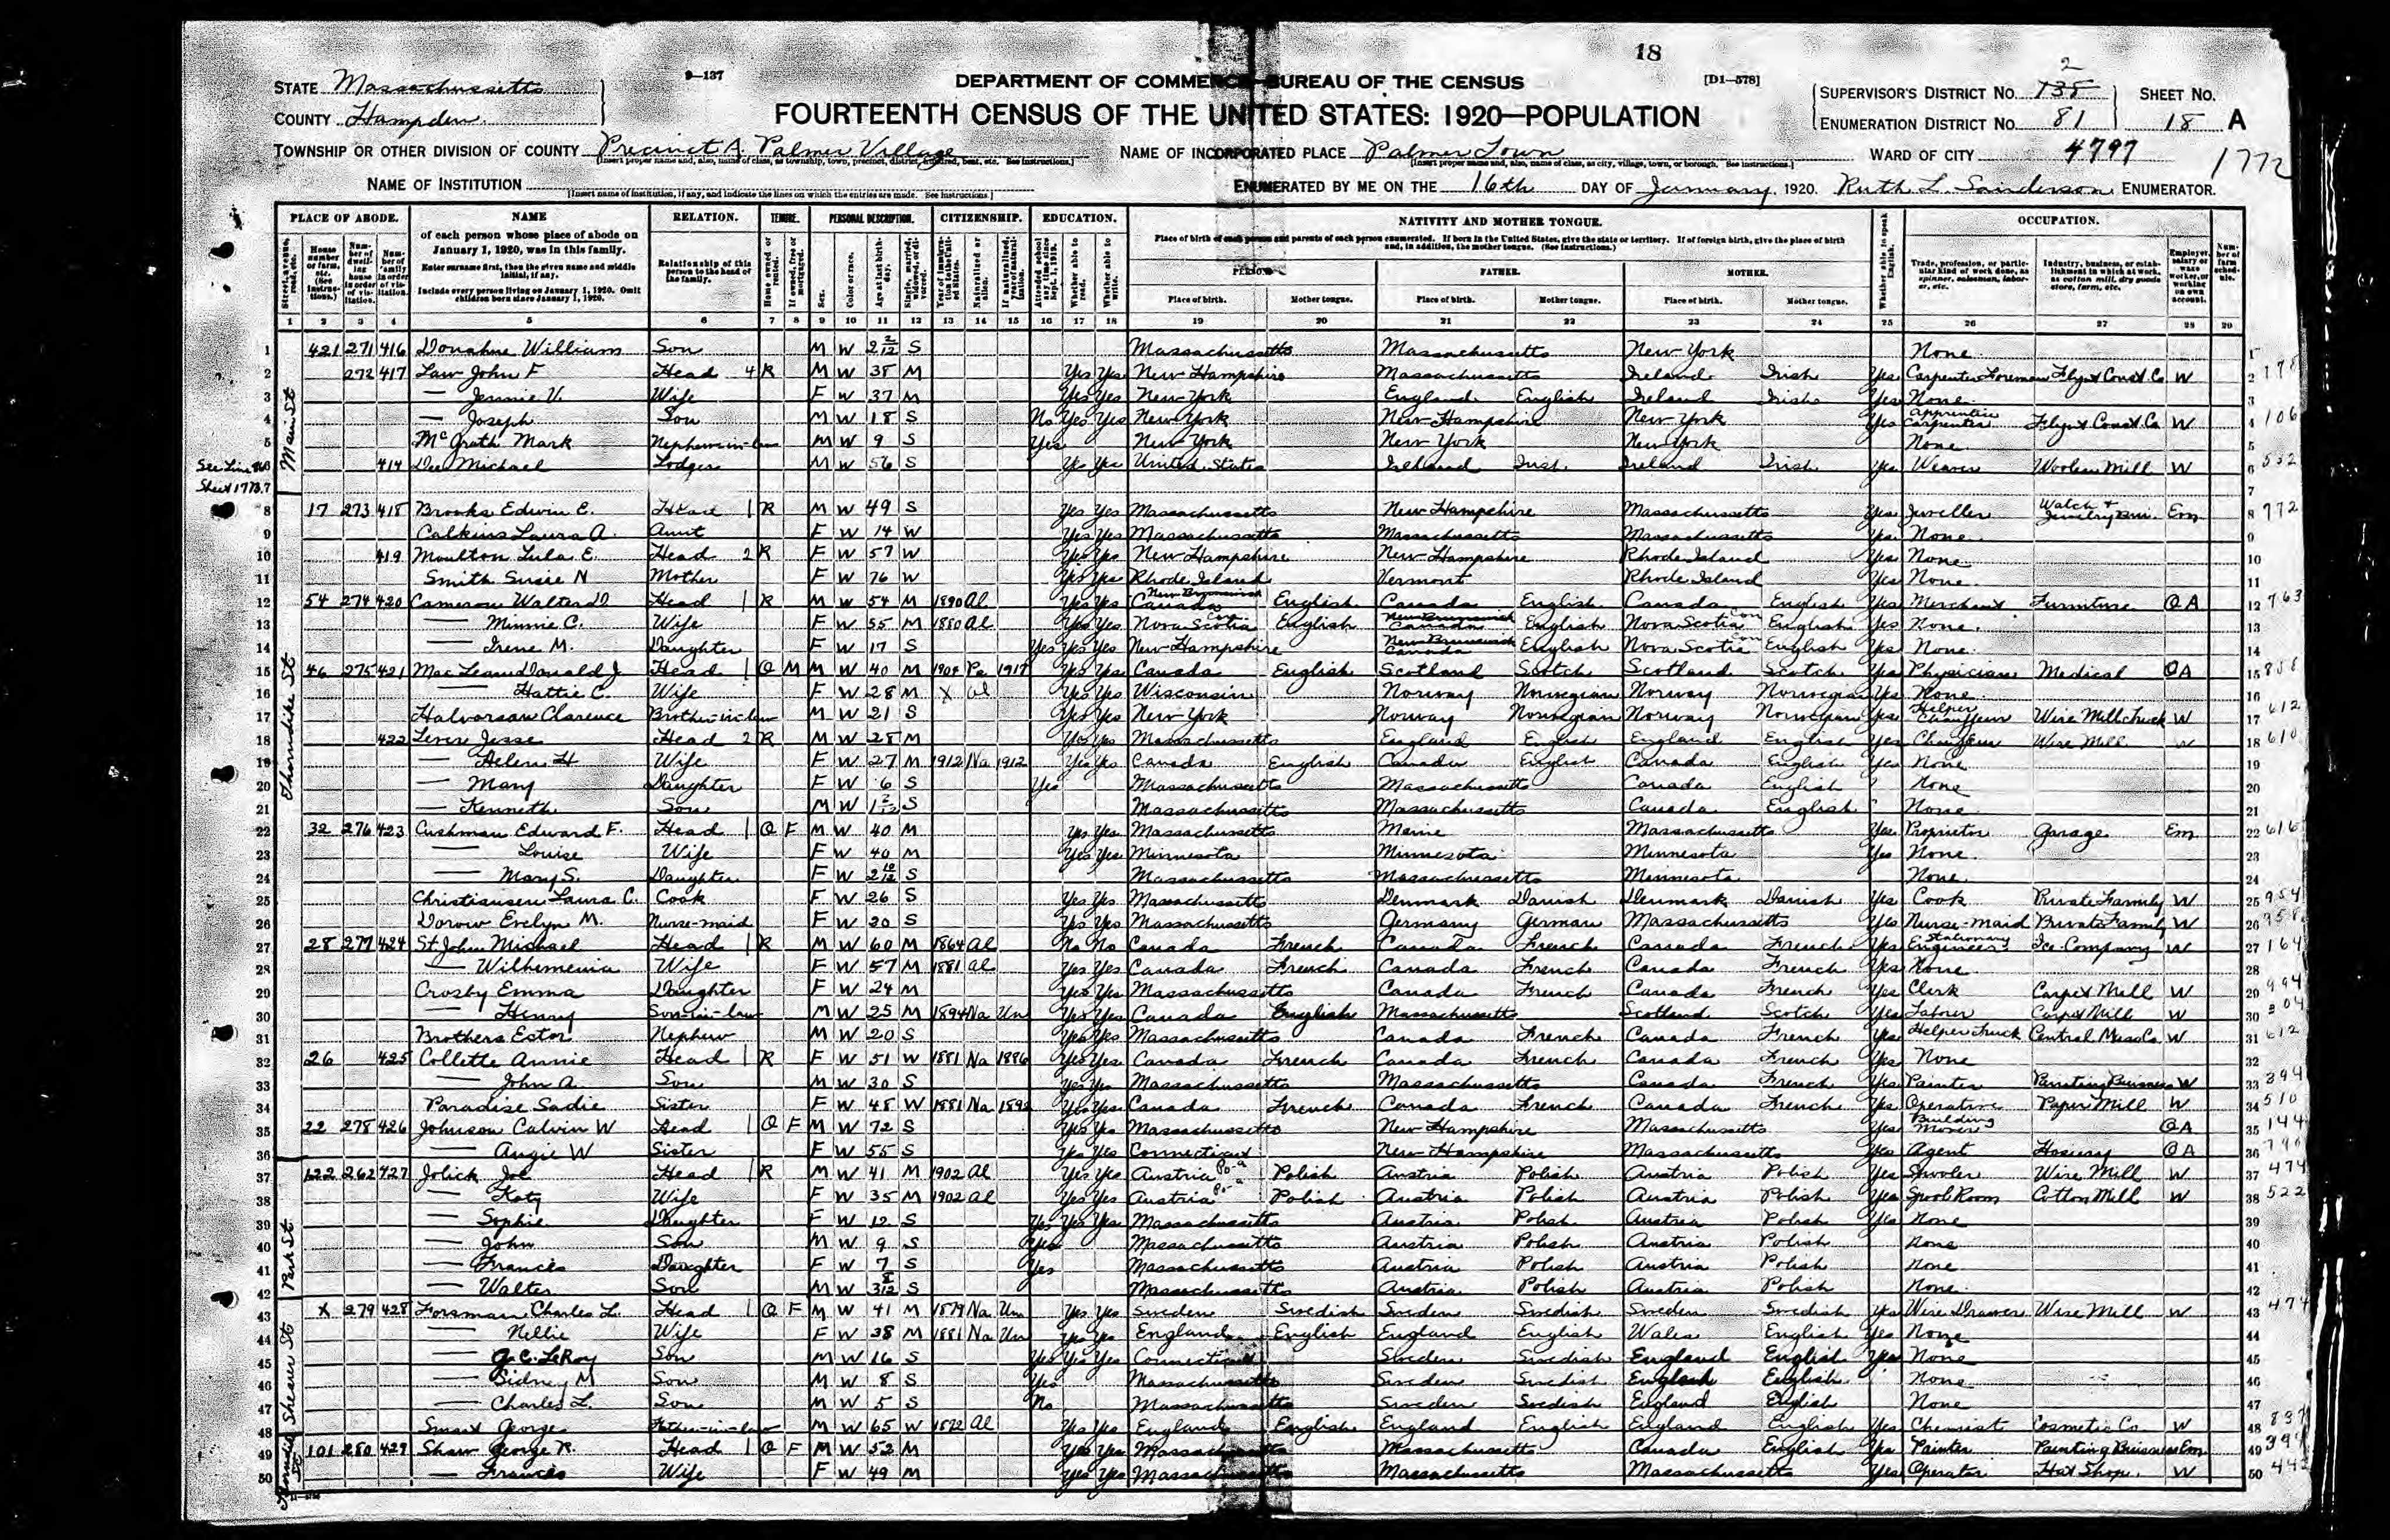 18
9—137
DEPARTMENT OF COMMERCE—BUREAU OF THE CENSUS
[D1—578]
FOURTEENTH CENSUS OF THE UNITED STATES: 1920—POPULATION
STATE Massachusetts
COUNTY Hampden
TOWNSHIP OR OTHER DIVISION OF COUNTY Precinct A. Palmer Village
NAME OF INCORPORATED PLACE Palmer Town
SUPERVISOR'S DISTRICT NO. 2
ENUMERATION DISTRICT NO. 81
SHEET NO. 18 A
WARD OF CITY 4797
1772
NAME OF INSTITUTION
[Insert name of institution, if any, and indicate the lines on which the entries are made. See instructions.]
ENUMERATED BY ME ON THE 16th DAY OF January, 1920. Ruth L. Sanderson ENUMERATOR.
PLACE OF ABODE. NAME RELATION. TENURE. PERSONAL DESCRIPTION. CITIZENSHIP. EDUCATION. NATIVITY AND MOTHER TONGUE. OCCUPATION.
of each person whose place of abode on January 1, 1920, was in this family.
Enter surname first, then the given name and middle initial, if any.
Include every person living on January 1, 1920. Omit children born since January 1, 1920.
Relationship of this person to the head of the family.
Place of birth of each person and parents of each person enumerated. If born in the United States, give the state or territory. If of foreign birth, give the place of birth and, in addition, the mother tongue. (See instructions.)
PERSON. FATHER. MOTHER.
Place of birth. Mother tongue. Place of birth. Mother tongue. Place of birth. Mother tongue.
1 2 3 4 5 6 7 8 9 10 11 12 13 14 15 16 17 18 19 20 21 22 23 24 25 26 27 28 29
Main St
1 421 271 416 Donahue William Son M W 2 2/12 S Massachusetts Massachusetts New York None
2 272 417 Law John F Head 4 R M W 38 M Yes Yes New Hampshire Massachusetts Ireland Irish Yes Carpenter Foreman Flynt Const Co W
3 — Jennie V. Wife F W 37 M Yes Yes New York England English Ireland Irish Yes None
4 — Joseph Son M W 18 S No Yes Yes New York New Hampshire New York Yes Apprentice Carpenter Flynt Const Co W 106
5 McGrath Mark Nephew-in-law M W 9 S Yes New York New York New York None
6 414 Dee Michael Lodger M W 56 S Yes Yes United States Ireland Irish Ireland Irish Yes Weaver Woolen Mill W 532
7
Thorndike St
8 17 273 418 Brooks Edwin E. Head 1 R M W 49 S Yes Yes Massachusetts New Hampshire Massachusetts Yes Jeweller Watch + Jewelry Em 772
9 Calkins Laura A. Aunt F W W Yes Yes Massachusetts Massachusetts Massachusetts Yes None
10 419 Moulton Lula E. Head 2 R F W 57 W Yes Yes New Hampshire New Hampshire Rhode Island Yes None
11 Smith Susie N Mother F W 76 W Yes Yes Rhode Island Vermont Rhode Island Yes None
12 54 274 420 Cameron Walter D Head 1 R M W 54 M 1890 Al Yes Yes New Brunswick Canada English Canada English Canada English Yes Merchant Furniture OA 763
13 — Minnie C. Wife F W 55 M 1880 Al Yes Yes Nova Scotia Can English New Brunswick Canada English Nova Scotia Can English Yes None
14 — Irene M. Daughter F W 17 S Yes Yes Yes New Hampshire New Brunswick Canada English Nova Scotia Can English Yes None
15 46 275 421 MacLean Donald J Head 1 O M M W 40 M 1904 Pa 1917 Yes Yes Canada English Scotland Scotch Scotland Scotch Yes Physician Medical OA
16 — Hattie C. Wife F W 28 M X Al Yes Yes Wisconsin Norway Norwegian Norway Norwegian Yes None
17 Halvorsan Clarence Brother-in-law M W 21 S Yes Yes New York Norway Norwegian Norway Norwegian Yes Helper Chauffeur Wire Mill truck W 612
18 422 Lever Jesse Head 2 R M W 28 M Yes Yes Massachusetts England English England English Yes Chauffeur Wire Mill W 610
19 — Helen H Wife F W 27 M 1912 Na 1912 Yes Yes Canada English Canada English Canada English Yes None
20 — Mary Daughter F W 6 S Yes Massachusetts Massachusetts Canada English None
21 — Kenneth Son M W 1 2/12 S Massachusetts Massachusetts Canada English None
22 32 276 423 Cushman Edward F. Head 1 O F M W 40 M Yes Yes Massachusetts Maine Massachusetts Yes Proprietor Garage Em 616
23 — Louise Wife F W 40 M Yes Yes Minnesota Minnesota Minnesota Yes None
24 — Mary S. Daughter F W 2 10/12 S Massachusetts Massachusetts Minnesota None
25 Christiansen Laura C. Cook F W 26 S Yes Yes Massachusetts Denmark Danish Denmark Danish Yes Cook Private Family W 954
26 Dorow Evelyn M. Nurse-maid F W 20 S Yes Yes Massachusetts Germany German Massachusetts Yes Nurse-maid Private Family W 958
27 28 277 424 St John Michael Head 1 R M W 60 M 1864 Al No No Canada French Canada French Canada French Yes Stationary Engineer Ice Company W 164
28 — Wilhemenia Wife F W 57 M 1881 Al Yes Yes Canada French Canada French Canada French Yes None
29 Crosby Emma Daughter F W 24 M Yes Yes Massachusetts Canada French Canada French Yes Clerk Carpet Mill W 994
30 — Henry Son-in-law M W 25 M 1894 Na Un Yes Yes Canada English Massachusetts Scotland Scotch Yes Laborer Carpet Mill W 304
31 Brothers Ester Nephew M W 20 S Yes Yes Massachusetts Canada French Canada French Yes Helper Truck Central Mass Co. W 612
32 26 425 Collette Annie Head 1 R F W 51 W 1881 Na 1886 Yes Yes Canada French Canada French Canada French Yes None
33 — John A. Son M W 30 S Yes Yes Massachusetts Massachusetts Canada French Yes Painter Painting Business W 394
34 Paradise Sadie Sister F W 48 W 1881 Na 1892 Yes Yes Canada French Canada French Canada French Yes Operative Paper Mill W 510
35 22 278 426 Johnson Calvin W Head 1 O F M W 72 S Yes Yes Massachusetts New Hampshire Massachusetts Yes Building Mover OA 144
36 — Angie W Sister F W 55 S Yes Yes Connecticut New Hampshire Massachusetts Yes Agent Hosiery OA
Park St
37 122 262 427 Jolick Joe Head 1 R M W 41 M 1902 Al Yes Yes Austria Polish Austria Polish Austria Polish Yes Spooler Wire Mill W 474
38 — Katy Wife F W 35 M 1902 Al Yes Yes Austria Polish Austria Polish Austria Polish Yes Spool Room Cotton Mill W 522
39 — Sophie Daughter F W 12 S Yes Yes Yes Massachusetts Austria Polish Austria Polish Yes None
40 — John Son M W 9 S Yes Massachusetts Austria Polish Austria Polish None
41 — Frances Daughter F W 7 S Yes Massachusetts Austria Polish Austria Polish None
42 — Walter Son M W 3 8/12 S Massachusetts Austria Polish Austria Polish None
Shearer St
43 X 279 428 Forsman Charles L. Head 1 O F M W 41 M 1879 Na Un Yes Yes Sweden Swedish Sweden Swedish Sweden Swedish Yes Wire Drawer Wire Mill W 474
44 — Nellie Wife F W 38 M 1881 Na Un Yes Yes England English England English Wales English Yes None
45 — G.C. LeRoy Son M W 16 S Yes Yes Yes Connecticut Sweden Swedish England English Yes None
46 — Sidney M Son M W 8 S Yes Massachusetts Sweden Swedish England English None
47 — Charles L. Son M W 5 S No Massachusetts Sweden Swedish England English None
48 Smart George Father-in-law M W 65 W 1882 Al Yes Yes England English England English England English Yes Chemist Cosmetic Co W
Thorndike St
49 101 280 429 Shaw George R. Head 1 O F M W 52 M Yes Yes Massachusetts Massachusetts Canada English Yes Painter Painting Business Em 394
50 — Frances Wife F W 49 M Yes Yes Massachusetts Massachusetts Massachusetts Yes Operator Hat Shop. W 442